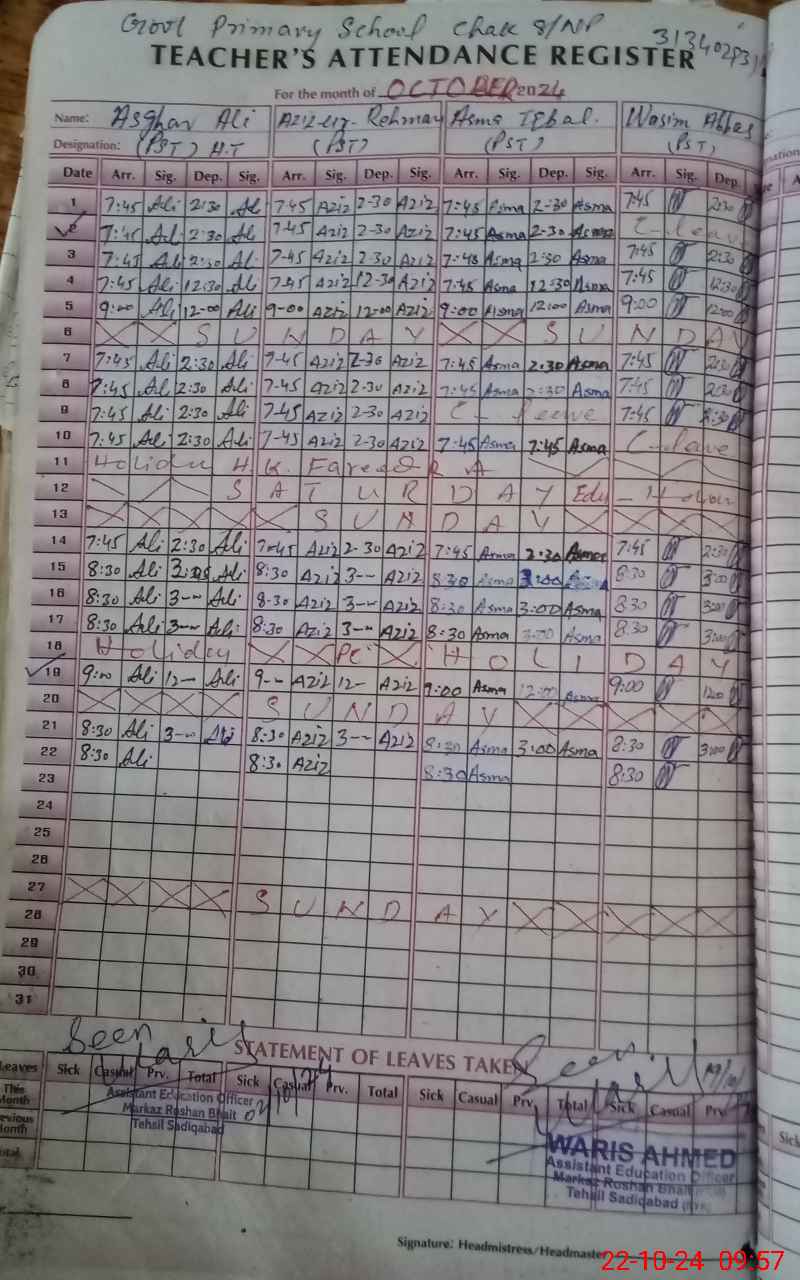 Govt Primary School Chak 8/NP
TEACHER'S ATTENDANCE REGISTER
For the month of OCTOBER 2024
Name: Asghar Ali Aziz-ur-Rehman Asma Iqbal. Wasim Abbas
Designation: (PST) H.T (PST) (PST) (PST)
Date Arr. Sig. Dep. Sig. Arr. Sig. Dep. Sig. Arr. Sig. Dep. Sig. Arr. Sig. Dep.
1 7:45 Ali 2:30 Ali 7-45 Aziz 2-30 Aziz 7:45 Asma 2-30 Asma 7:45 2:30
2 7:45 Ali 2:30 Ali 7-45 Aziz 2-30 Aziz 7:45 Asma 2-30 Asma C-leave
3 7:45 Ali 2:30 Ali 7-45 Aziz 2-30 Aziz 7:45 Asma 2:30 Asma 7:45 2:30
4 7:45 Ali 12:30 Ali 7-45 Aziz 12-30 Aziz 7:45 Asma 12:30 Asma 7:45 12:30
5 9:00 Ali 12-00 Ali 9-00 Aziz 12-00 Aziz 9:00 Asma 12:00 Asma 9:00 12:00
6 SUNDAY SUNDAY
7 7:45 Ali 2:30 Ali 7-45 Aziz 2-30 Aziz 7:45 Asma 2:30 Asma 7:45 2:30
8 7:45 Ali 2:30 Ali 7-45 Aziz 2-30 Aziz 7:45 Asma 2:30 Asma 7:45 2:30
9 7:45 Ali 2:30 Ali 7-45 Aziz 2-30 Aziz C- Leeve 7:45 2:30
10 7:45 Ali 2:30 Ali 7-45 Aziz 2-30 Aziz 7:45 Asma 7:45 Asma C-leave
11 Holiday H.K. Fareed
12 SATURDAY
13 SUNDAY
14 7:45 Ali 2:30 Ali 7-45 Aziz 2-30 Aziz 7:45 Asma 2:30 Asma 7:45 2:30
15 8:30 Ali 3:00 Ali 8:30 Aziz 3-- Aziz 8:30 Asma 3:00 Asma 8:30 3:00
16 8:30 Ali 3-- Ali 8:30 Aziz 3-- Aziz 8:30 Asma 3:00 Asma 8:30 3:00
17 8:30 Ali 3-- Ali 8:30 Aziz 3-- Aziz 8:30 Asma 3:00 Asma 8:30 3:00
18 Holiday HOLIDAY
19 9:00 Ali 12-- Ali 9-- Aziz 12- Aziz 9:00 Asma 12:00 Asma 9:00 1200
20 SUNDAY
21 8:30 Ali 3-- Ali 8:30 Aziz 3-- Aziz 8:30 Asma 3:00 Asma 8:30 3:00
22 8:30 Ali 8:30 Aziz 8:30 Asma 8:30
23
24
25
26
27 SUNDAY
28
29
30
31
Seen Seen
STATEMENT OF LEAVES TAKEN
Leaves Sick Casual Prv. Total Sick Casual Prv. Total Sick Casual Prv. Total Sick Casual Prv.
This Month
Previous Month
Total
Assistant Education Officer
Markaz Roshan Bhait
Tehsil Sadiqabad
WARIS AHMED
Assistant Education Officer
Markaz Roshan Bhait
Tehsil Sadiqabad
Signature: Headmistress/Headmaster
22-10-24 09:57